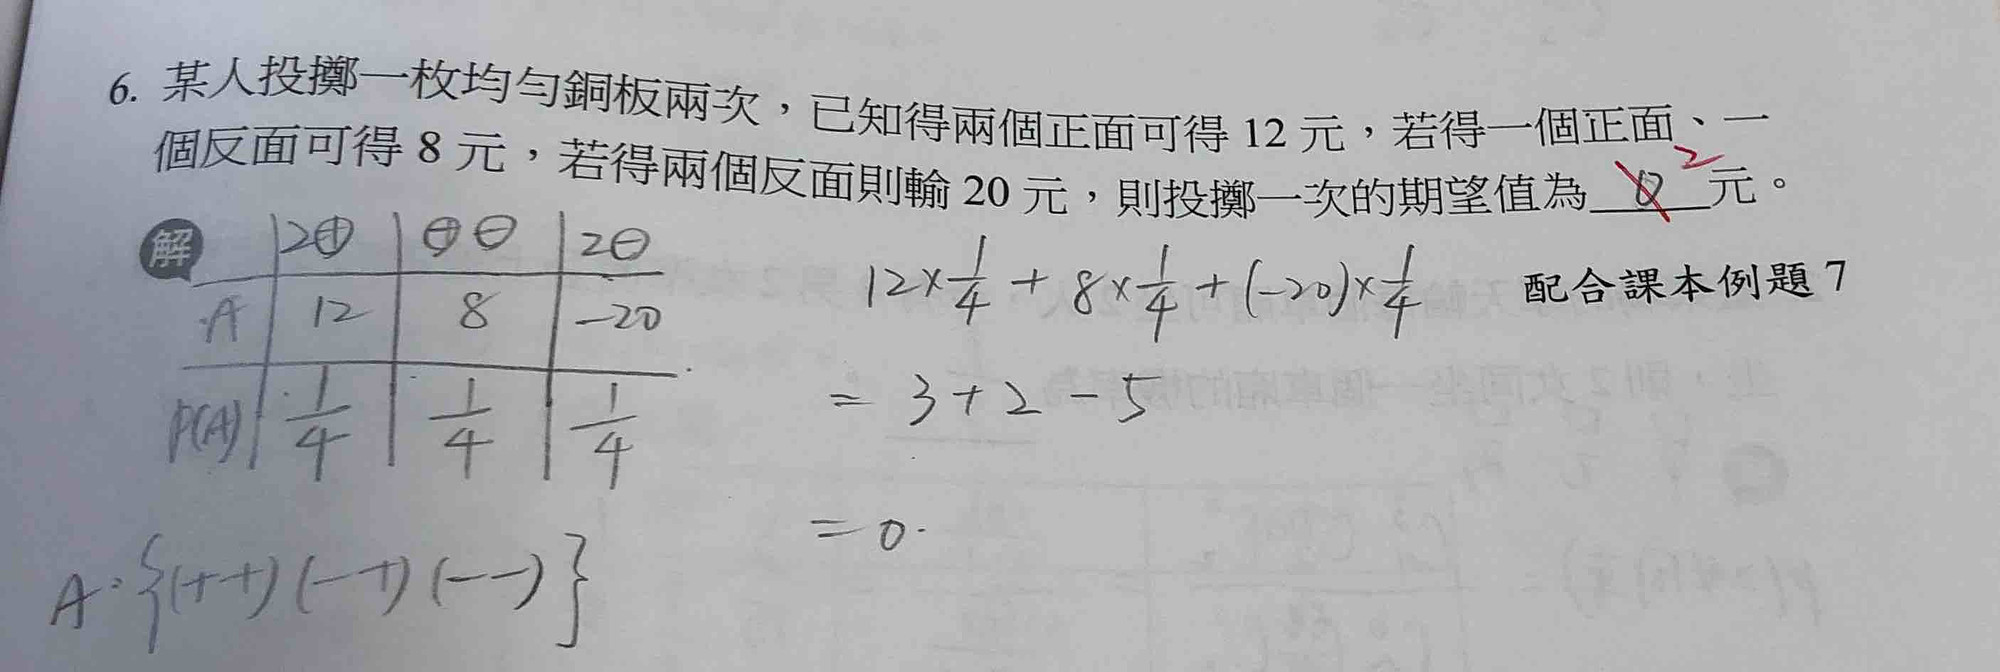 6. 某人投擲一枚均勻銅板兩次，已知得兩個正面可得 12 元，若得一個正面、一
個反面可得 8 元，若得兩個反面則輸 20 元，則投擲一次的期望值為 0 2 元。
解 2⊕ ⊕⊖ 2⊖
A 12 8 -20
P(A) 1/4 1/4 1/4
A:{(++)(-+)(--)}
12×1/4+8×1/4+(-20)×1/4
配合課本例題 7
=3+2-5
=0.